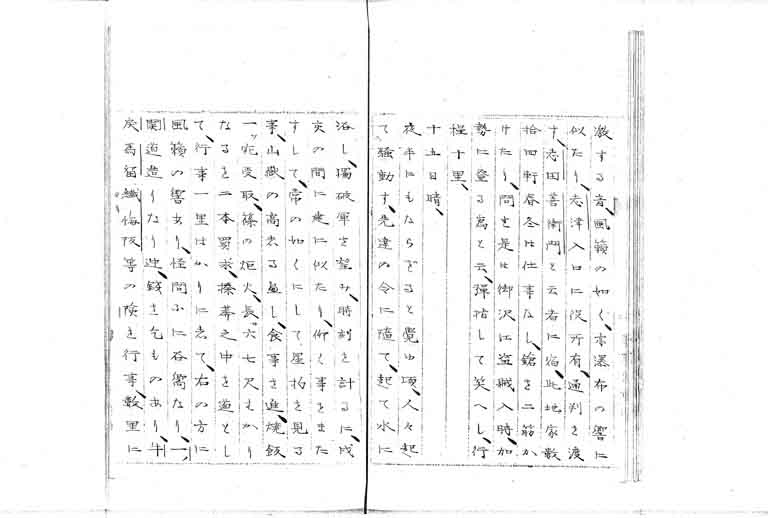 激する音、風籟の如く、亦瀑布の響に
似たり、志津入口に役所有、通判を渡
す、志田善衛門と云者に宿、此地家数
拾四軒春冬は仕事なし、鎗を二筋か
けたり、問を是は御沢江盗賊入時、加
勢に登る為と云、弾指して笑へし、行
程十里、
十五日晴、
夜半にもならざると覺ゆ頃、人々起
て騒動す、先達の令に随て、起て水に
浴し、揚破軍を望み時刻を計るに、戌
亥の間に建に似たり、仰く事をまた
すして、常の如くにして星拍を見る
事、山嶽の高ある益し、食事を進、焼飯
一ッ宛受取、篠の炬火、長六七尺もかり
なるを二本買求、搽莽之中を道とし
て、行事一里はかりにして、右の方に
風籟の響あり、怪問ふに谷響なり、一、
関道造りたり迚、銭を乞ものあり、牛
戻馬留纎悔阪等の険を行事、數里に